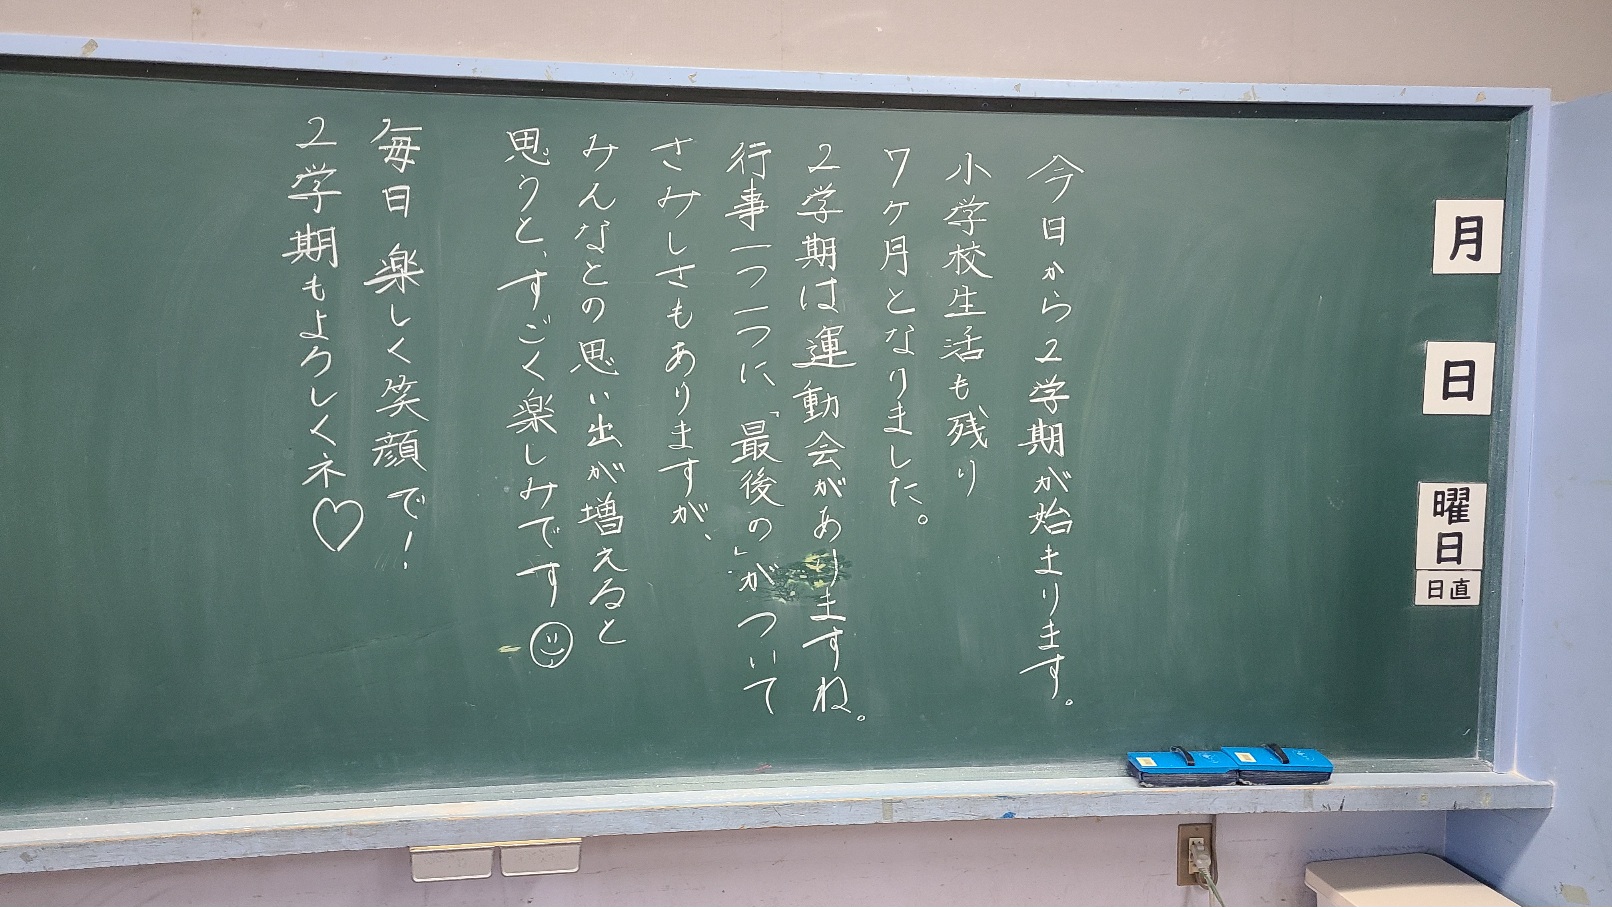 月
日
曜日
日直
今日から2学期が始まります。
小学校生活も残り
7ヶ月となりました。
2学期は運動会がありますね。
行事一つ一つに、「最後の」がついて
さみしさもありますが、
みんなとの思い出が増えると
思うと、すごく楽しみです
毎日楽しく笑顔で!
2学期もよろしくネ♡